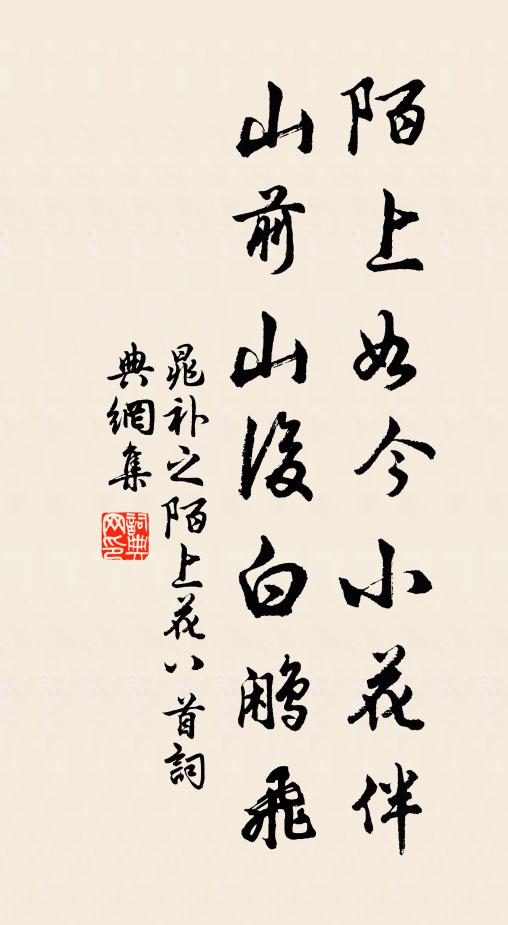 陌上如今小花伴
山前山後白鷴飛
晁补之陌上花八首詞
典網集
詞典
网印